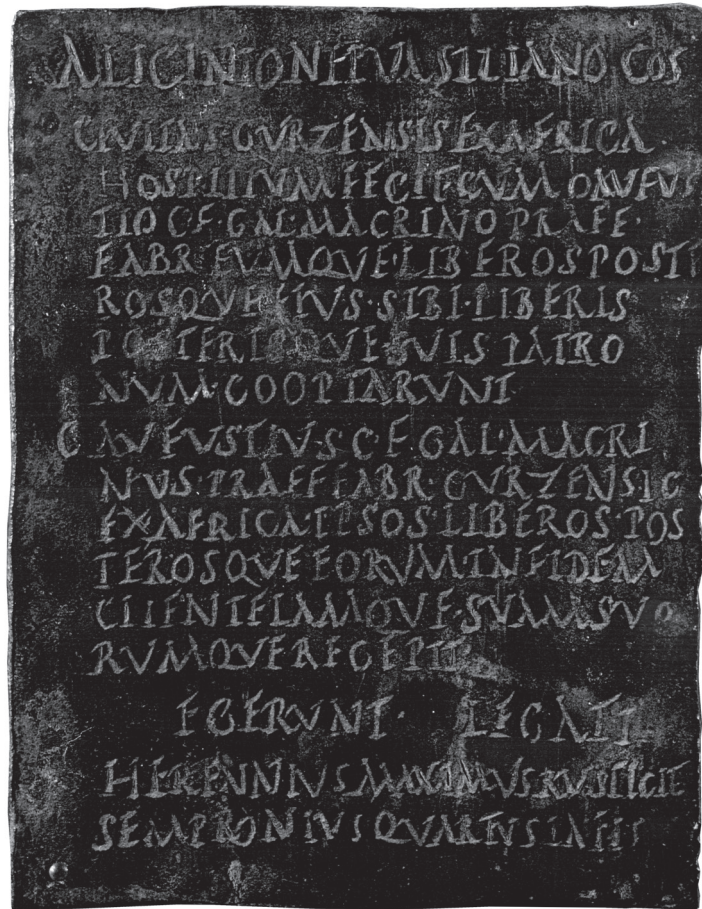 A LICINIO NERVA SILIANO COS
CIVITAS · GVRZENSIS EX AFRICA
HOSPITIVM FECIT CVM C AVFVS
TIO C · F · GAL · MACRINO PRAEF ·
FABR EVMQVE · LIBEROS POSTE
ROSQVE EIVS · SIBI · LIBERIS
POSTERISQVE SVIS PATRO
NVM · COOPTARVNT
C AVFVSTIVS C F GAL · MACRI
NVS · PRAEF FABR · GVRZENSIS
EX AFRICA · IPSOS · LIBEROS · POS
TEROSQVE EORVM IN FIDEM
CLIENTELAMQVE · SVAM SVO
RVMQVE RECEPIT
EGERVNT · LEGATI
HERENNIVS MAXIMVS RVSTICI F
SEMPRONIVS QVARTVS IAFIS